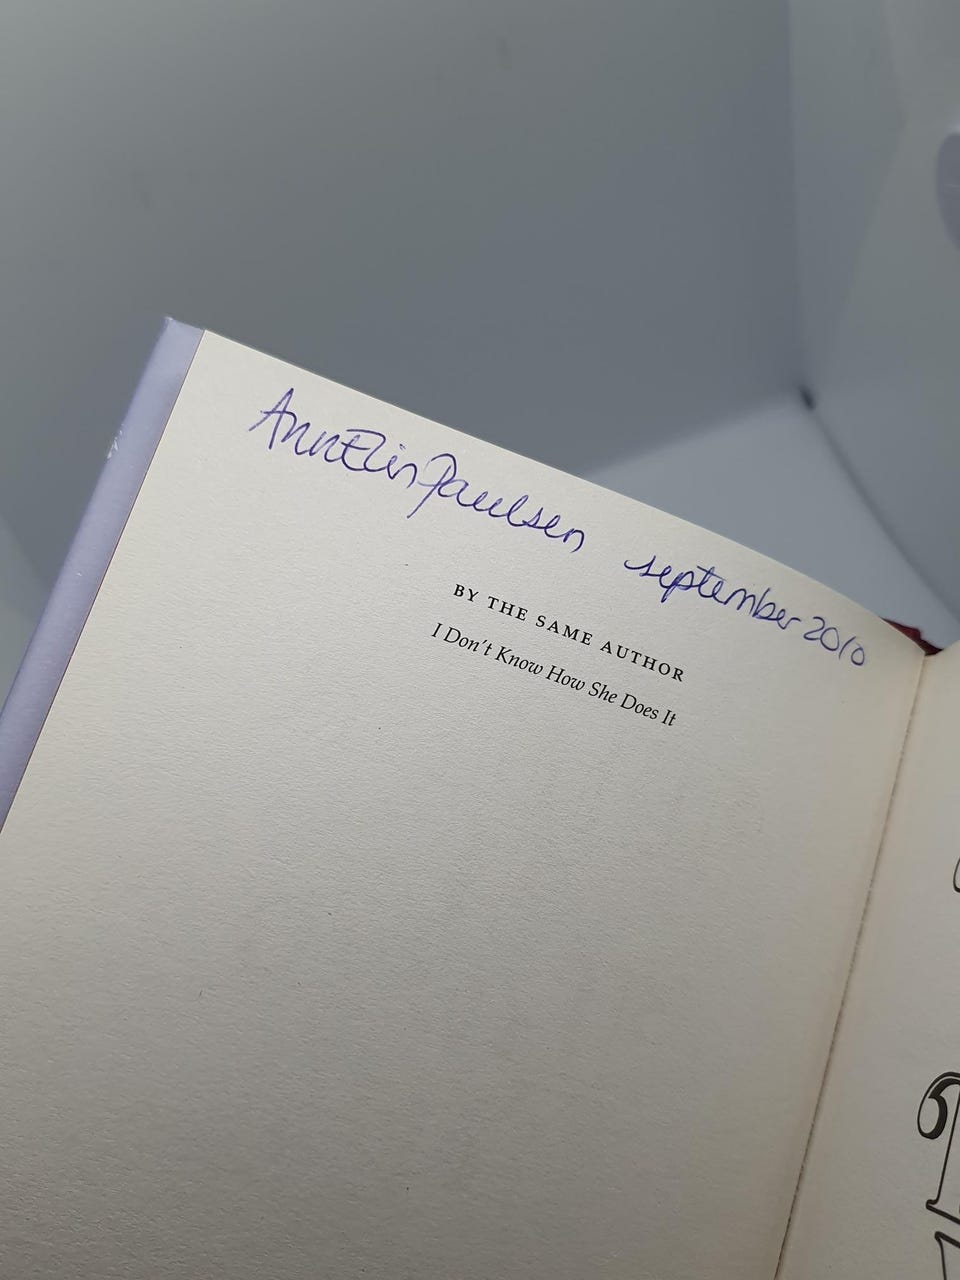 Ann Elin Paulsen september 2010
BY THE SAME AUTHOR
I Don't Know How She Does It